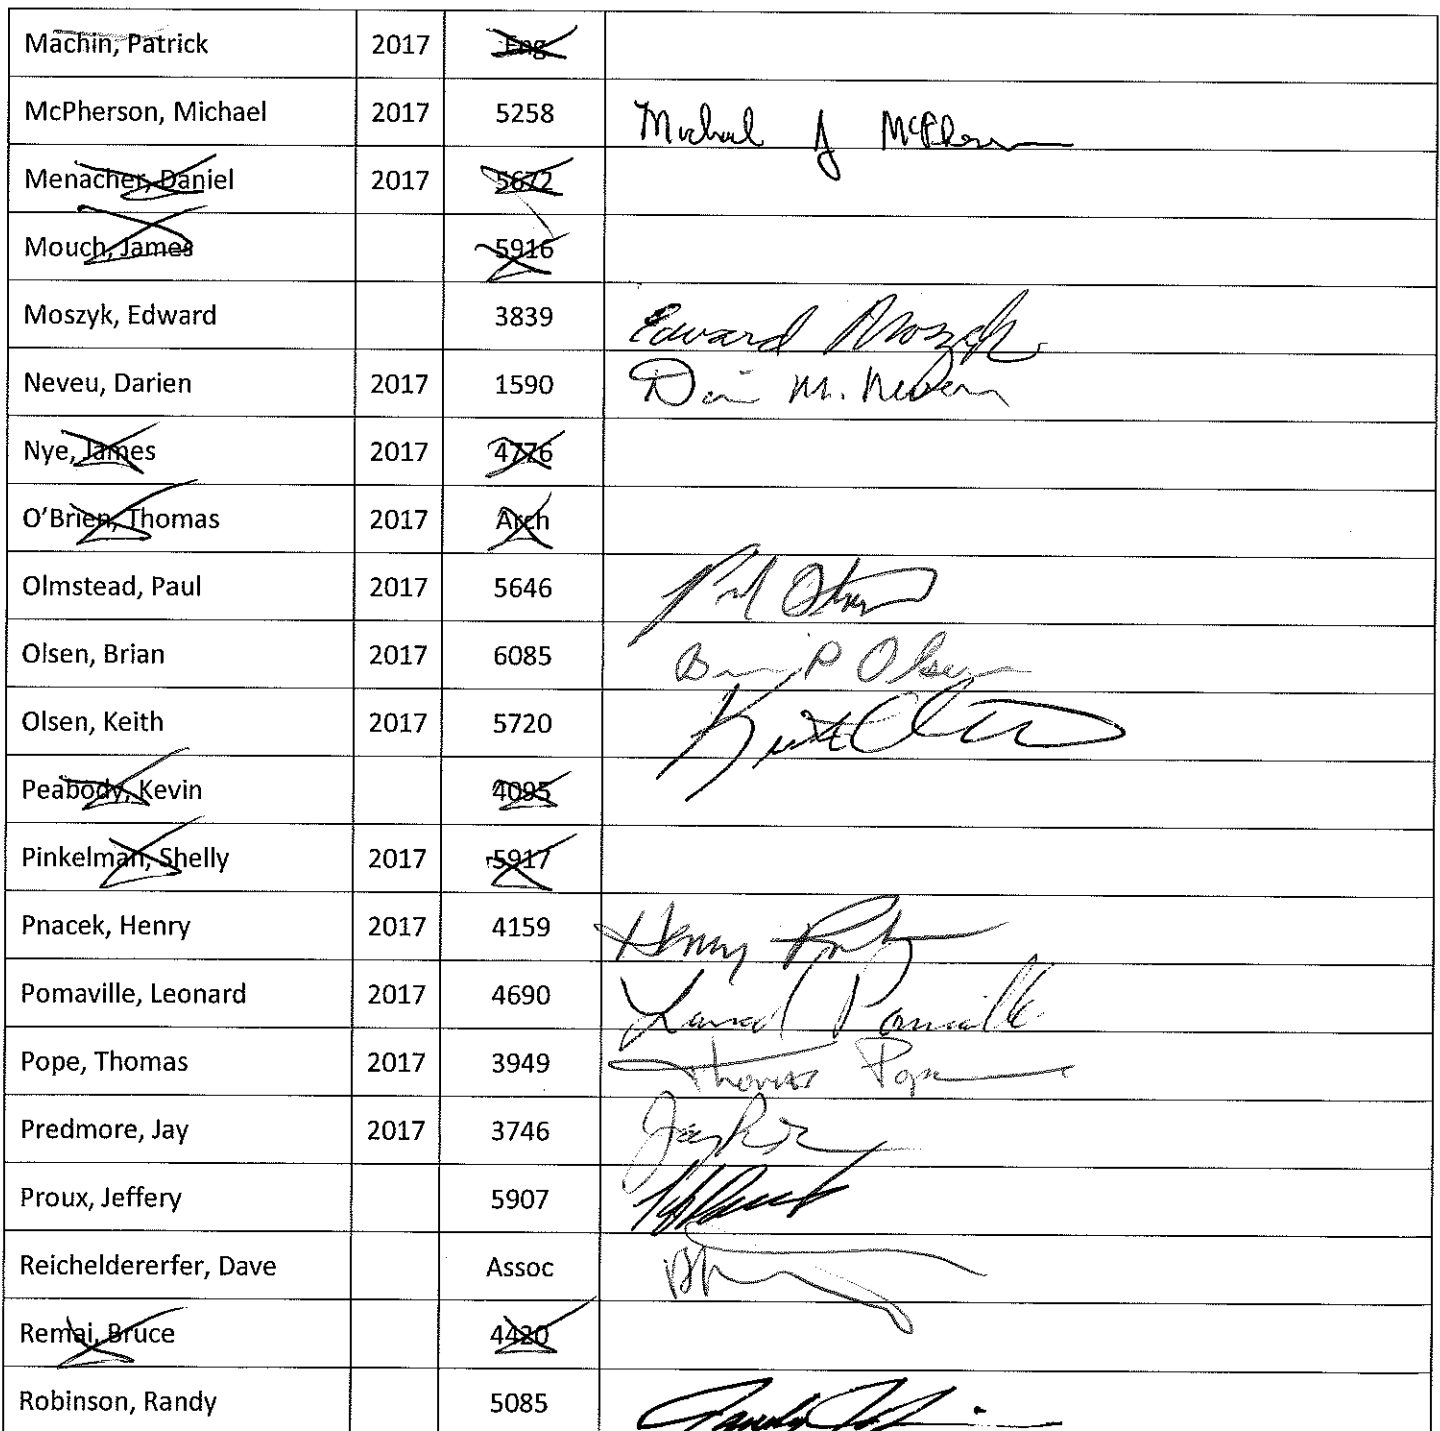 Machin, Patrick 2017 Eng
McPherson, Michael 2017 5258 Michael J McPherson
Menacher, Daniel 2017 5672
Mouch, James 5916
Moszyk, Edward 3839 Edward Moszyk
Neveu, Darien 2017 1590 Darien M. Neveu
Nye, James 2017 4776
O'Brien, Thomas 2017 Arch
Olmstead, Paul 2017 5646 Paul Olmstead
Olsen, Brian 2017 6085 Brian P Olsen
Olsen, Keith 2017 5720 Keith Olsen
Peabody, Kevin 4095
Pinkelman, Shelly 2017 5917
Pnacek, Henry 2017 4159 Henry Pnacek
Pomaville, Leonard 2017 4690 Leonard Pomaville
Pope, Thomas 2017 3949 Thomas Pope
Predmore, Jay 2017 3746 Jay
Proux, Jeffery 5907
Reicheldererfer, Dave Assoc
Remai, Bruce 4420
Robinson, Randy 5085 Randy Robinson